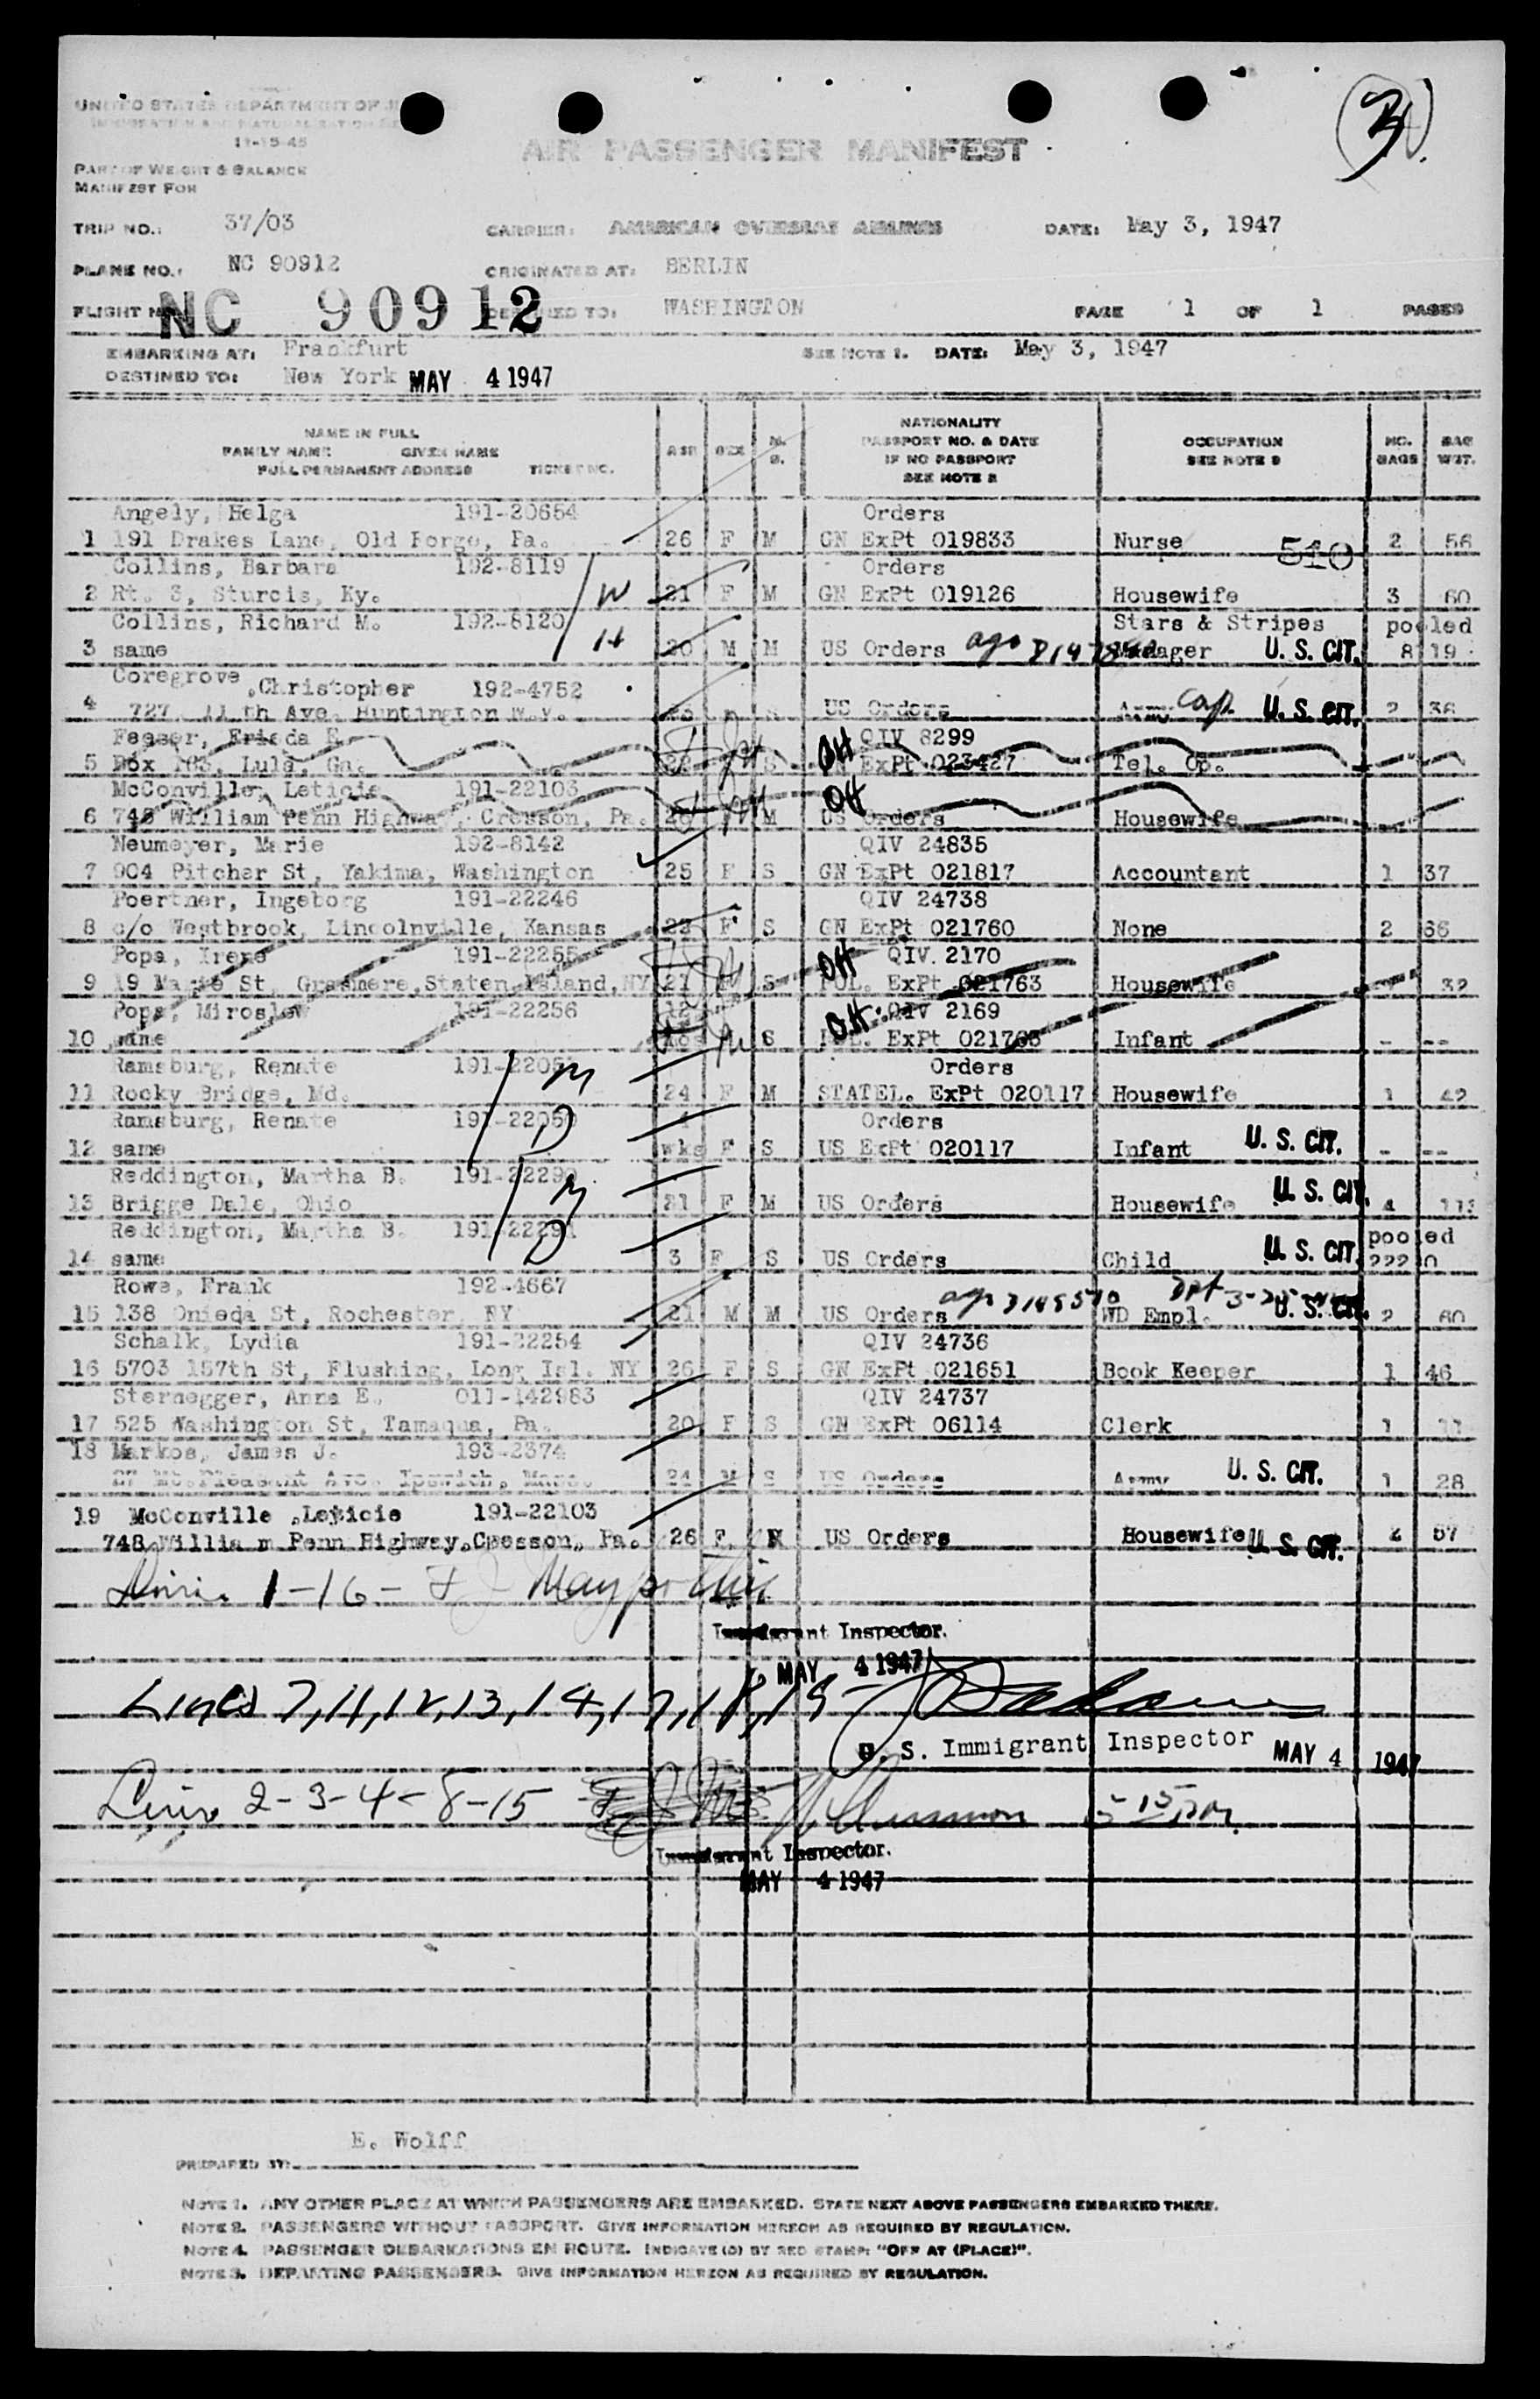 UNITED STATES DEPARTMENT OF
IMMIGRATION AND NATURALIZATION
11-15-45
AIR PASSENGER MANIFEST
PART OF WEIGHT & BALANCE
MANIFEST FOR
TRIP NO.: 37/03 CARRIER: AMERICAN OVERSEAS AIRLINES DATE: May 3, 1947
PLANE NO.: NC 90912 ORIGINATED AT: BERLIN
FLIGHT NC 90912 TO: WASHINGTON PAGE 1 OF 1 PAGES
EMBARKING AT: Frankfurt SEE NOTE 1. DATE: May 3, 1947
DESTINED TO: New York MAY 4 1947
NAME IN FULL
FAMILY NAME GIVEN NAME
FULL PERMANENT ADDRESS TICKET NO.
AGE SEX M. S.
NATIONALITY
PASSPORT NO. & DATE
IF NO PASSPORT
SEE NOTE 2
OCCUPATION
SEE NOTE 3
NO. BAGS
BAG WGT.
Angely, Helga 191-20654 Orders
1 191 Drakes Lane, Old Forge, Pa. 26 F M GN ExPt 019833 Nurse 510 2 56
Collins, Barbara 192-8119 Orders
2 Rt. 3, Sturcis, Ky. W 21 F M GN ExPt 019126 Housewife 3 60
Collins, Richard M. 192-8120 Stars & Stripes pooled
3 same H 20 M M US Orders ago Manager U. S. CIT. 8 119
Coregrove, Christopher 192-4752
4 727 11 th Ave. Huntington W.V. S US Orders Army Cap. U. S. CIT. 2 36
Fesser, Erieda E. QIV 8299
5 Box 103, Lula, Ga. S OH ExPt 023427 Tel. Op.
McConville, Leticie 191-22103 OH
6 748 William Penn Highway, Cresson, Pa. 26 M US Orders Housewife
Neumeyer, Marie 192-8142 QIV 24835
7 904 Pitcher St, Yakima, Washington 25 F S GN ExPt 021817 Accountant 1 37
Poertner, Ingeborg 191-22246 QIV 24738
8 c/o Westbrook, Lincolnville, Kansas 23 F S GN ExPt 021760 None 2 66
Popa, Irene 191-22255 OH QIV. 2170
9 19 Maple St, Grasmere, Staten Island, NY 21 F S POL. ExPt 021763 Housewife 32
Popa, Miroslew 191-22256 OH QIV 2169
10 same S POL. ExPt 021763 Infant - --
Ramsburg, Renate 191-22055 M Orders
11 Rocky Bridge, Md. 24 F M STATEL. ExPt 020117 Housewife 1 42
Ramsburg, Renate 191-22056 D Orders
12 same wks F S US ExPt 020117 Infant U. S. CIT. - --
Reddington, Martha B. 191-22290 M
13 Brigge Dale, Ohio 21 F M US Orders Housewife U. S. CIT. 4 113
Reddington, Martha B. 191-22291 D pooled
14 same 3 F S US Orders Child U. S. CIT.
Rowe, Frank 192-4667
15 138 Onieda St, Rochester, NY 21 M M US Orders ago WD Empl. U. S. CIT. 2 60
Schalk, Lydia 191-22254 QIV 24736
16 5703 157th St, Flushing, Long Isl. NY 26 F S GN ExPt 021651 Book Keeper 1 46
Sternegger, Anna E. 011-142983 QIV 24737
17 525 Washington St, Tamaqua, Pa. 20 F S GN ExPt 06114 Clerk 1 11
18 Markos, James J. 193-2374
27 Mt. Pleasant Ave. Ipswich, Mass. 24 M S US Orders Army U. S. CIT. 1 28
19 McConville, Leticie 191-22103
748 Willia m Penn Highway, Cresson, Pa. 26 F. M US Orders Housewife U. S. CIT. 2 57
1-16-
Immigrant Inspector.
MAY 4 1947
Lines 7,11,12,13,14,17,18,19
U. S. Immigrant Inspector MAY 4 1947
Lines 2-3-4-8-15
Immigrant Inspector.
MAY 4 1947
E. Wolff
PREPARED BY:
NOTE 1. ANY OTHER PLACE AT WHICH PASSENGERS ARE EMBARKED. STATE NEXT ABOVE PASSENGERS EMBARKED THERE.
NOTE 2. PASSENGERS WITHOUT PASSPORT. GIVE INFORMATION HEREON AS REQUIRED BY REGULATION.
NOTE 4. PASSENGER DEBARKATIONS EN ROUTE. INDICATE (O) BY RED STAMP: "OFF AT (PLACE)".
NOTE 3. DEPARTING PASSENGERS. GIVE INFORMATION HEREON AS REQUIRED BY REGULATION.